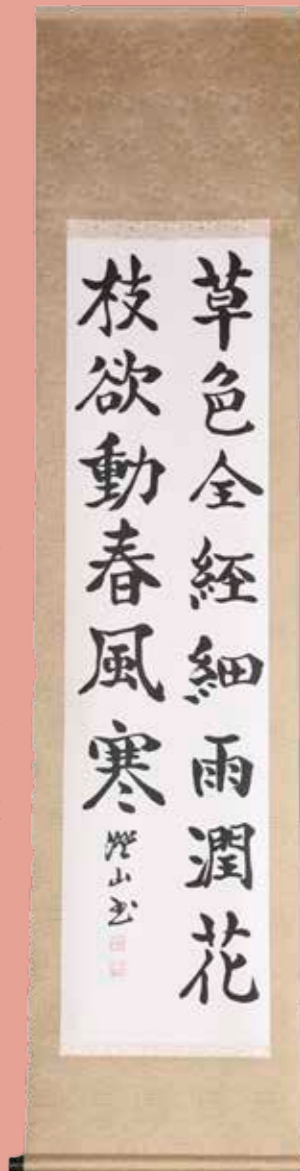 草色全経細雨潤花
枝欲動春風寒
山書